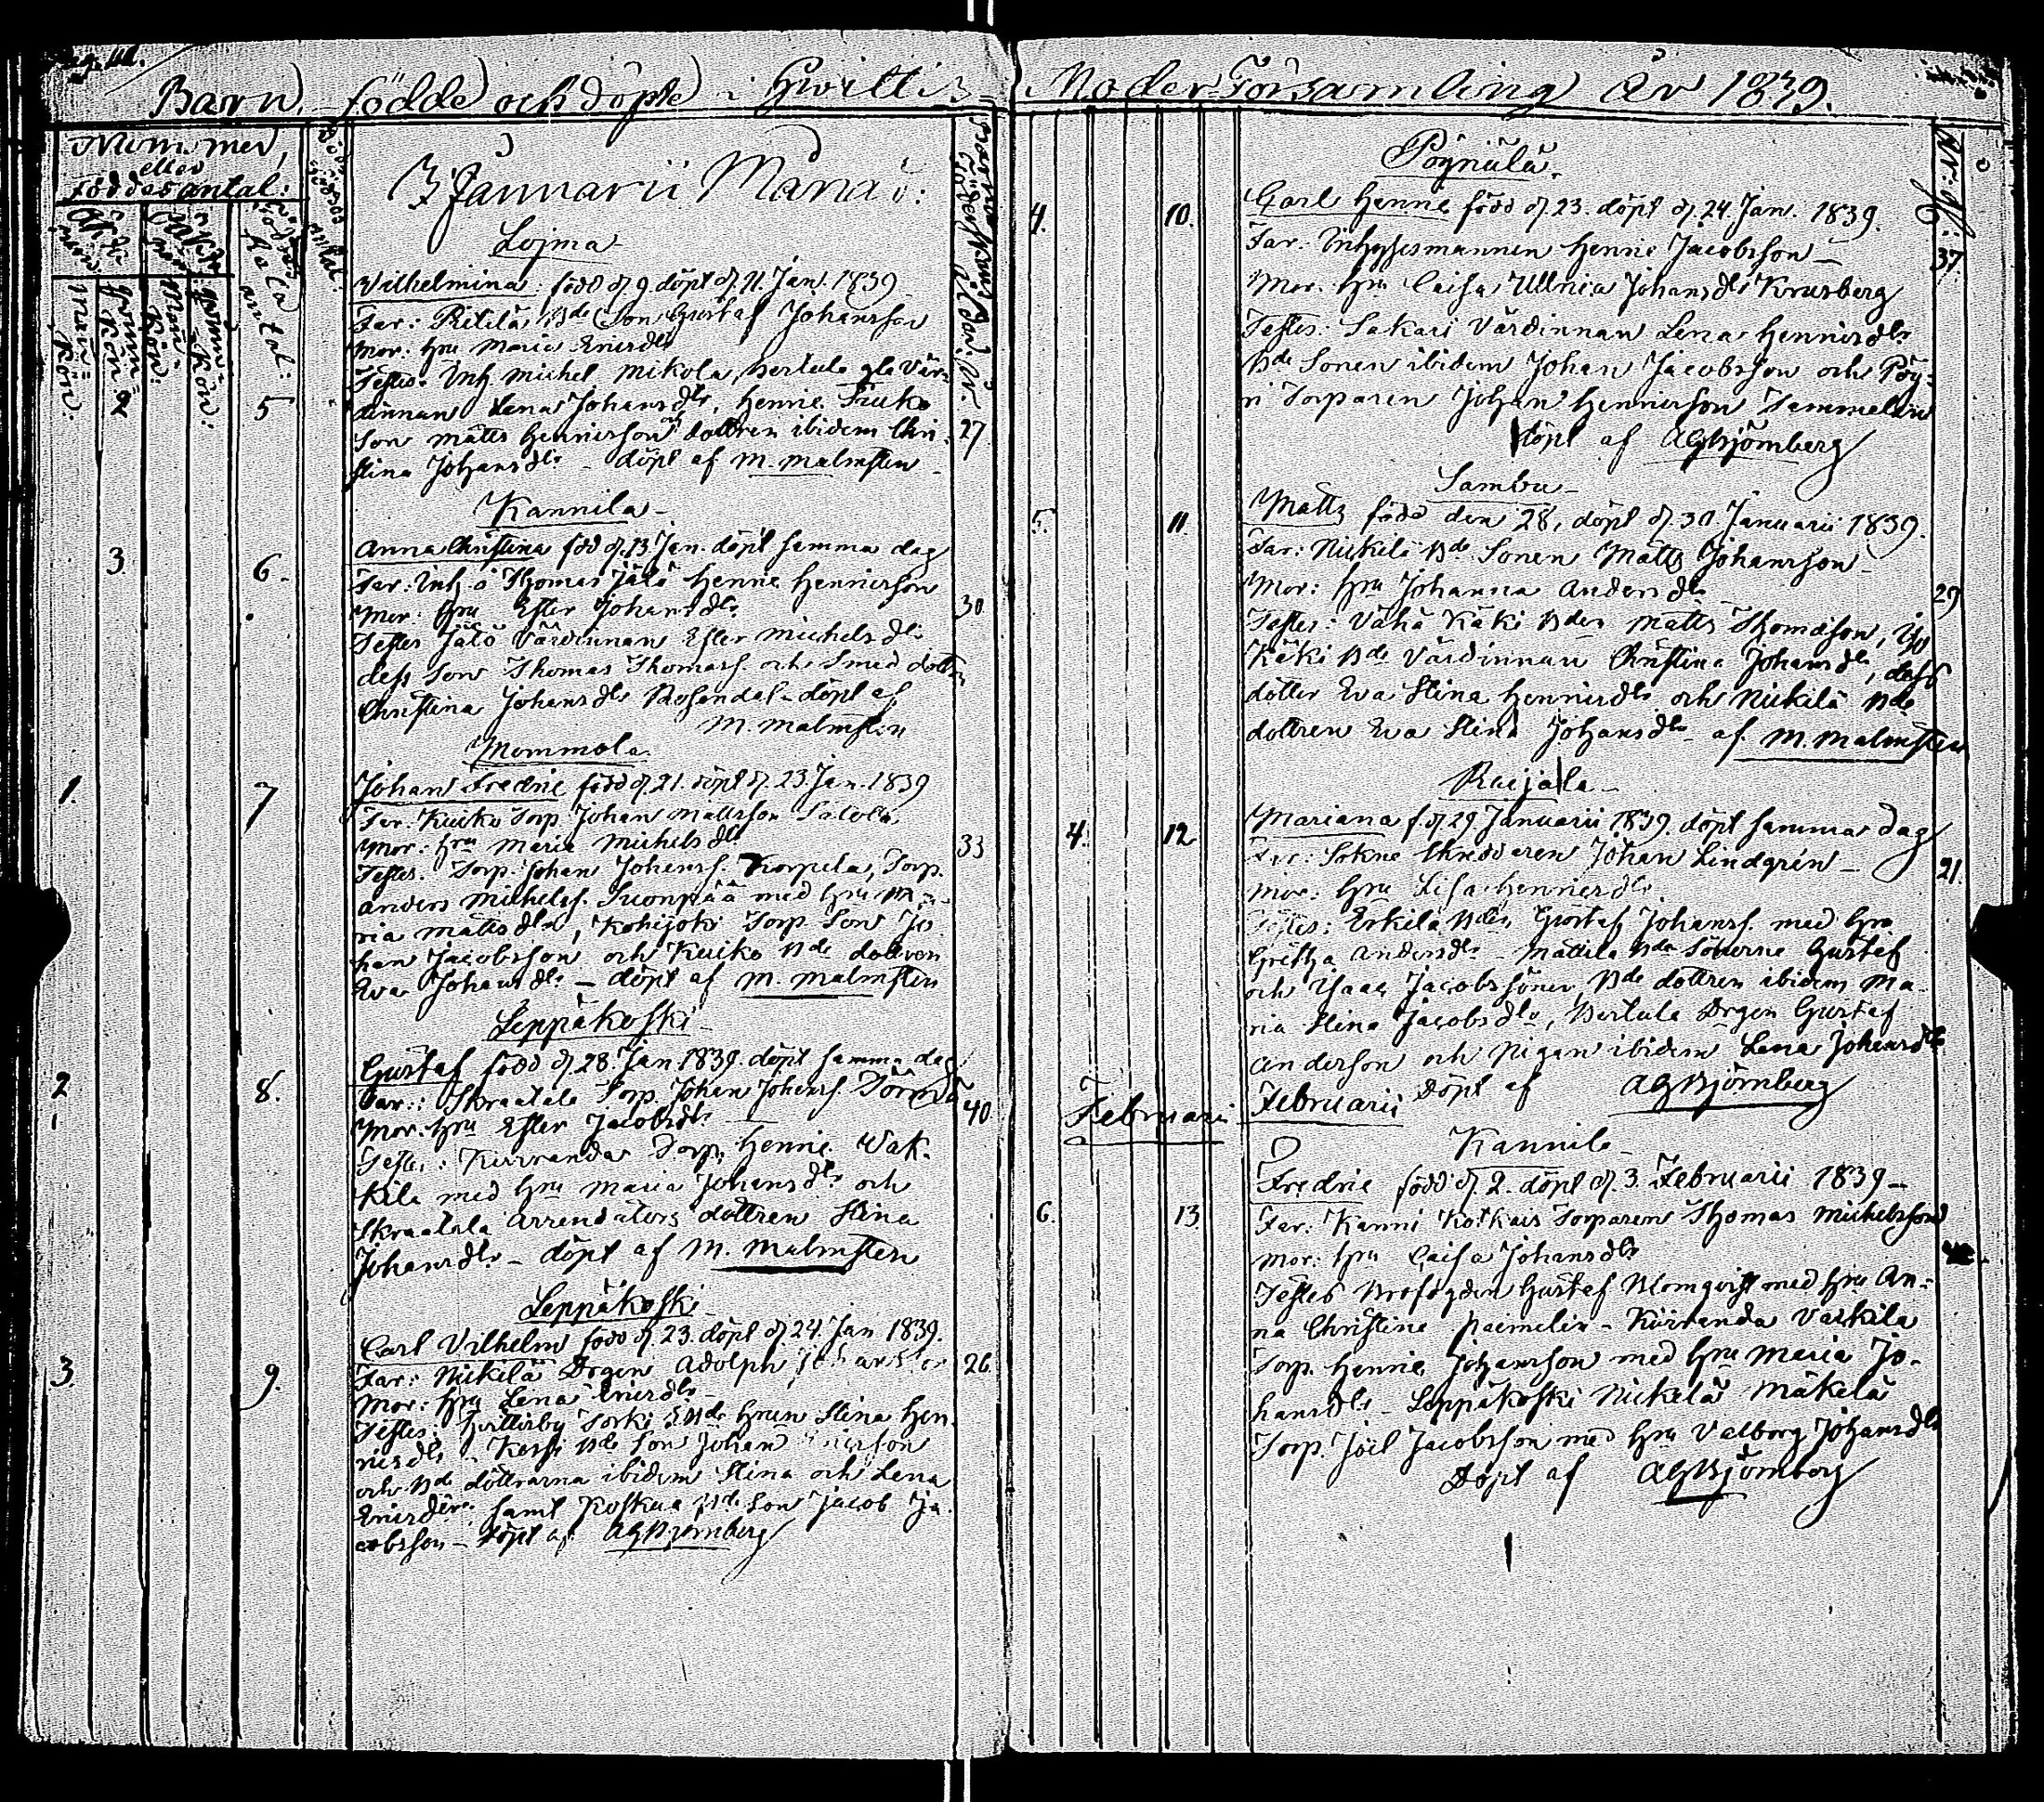 Barn födde och döpte i Hvittis Moder Församling år 1839.
Nummer
efter
födde antal:
Äkta
Oäkta
hela
antal:
man=
kön:
qvinn=
kön
Man=
kön:
qvinn=
kön:
Januarii Månad:
Loima
Wilhelmina: född d. 9. döpt d. 11. Jan: 1839
Far: Ritilä Bde Son Gustaf Johansson
Mor: hru Maria Ericsdr
Testes: Inh Michel Mikola, Bertula gla Vär=
5
dinnan Lena Johansdr, Henric
son Matts Henricsson dottren ibidem Chri=
27
stina Johansdr – döpt af M. Malmsten
Kannila
Anna Christina föd d. 13 Jan. döpt samma dag
3. 6.
Far: Inh å Thomas Jälö Henric Henricsson
Mor: hru Ester Johansdr
30
Testes Jälö Värdinnan Ester Michelsdr
dess Son Thomas Thomass. och Smed dottren
Christina Johansdr Rosendal – döpt af
M. Malmsten
Mommola
Johan Fredric född d. 21. döpt d. 23 Jan. 1839
1. 7
Far: Kuiko Torp. Johan Mattsson Salola
Mor: hru Maria Michelsdr
33
Testes. Torp. Johan Johanss. Korpela, Torp.
Anders Michelss. Suonpää med hru Ma=
ria Mattsdr, Kohijoki Torp. Son Jo=
han Jacobsson och Kuiko Bde dottren
Eva Johansdr – döpt af M. Malmsten
Leppäkoski
Gustaf född d. 28. Jan 1839. döpt samma dag
2 8.
Far: Skraatala Torp. Johan Johanss.
40
Mor: hru Ester Jacobsdr
Testes: Kirranda Torp. Henric Wak=
kila med hru Maria Johansdr och
Skraatala Arrendators dottren Stina
Johansdr – döpt af M. Malmsten
Leppäkoski
Carl Vilhelm född d. 23. döpt d. 24. Jan 1839.
3. 9.
Far: Nickilä Drgen Adolph Johansson
26
Mor: hru Lena Ericsdr
Testes: Hvittisby Sorki Bde hrun Stina Hen=
ricsdr – Bde Son Johan
och Bde döttrarna ibidem Stina och Lena
samt Koskua Bde Son Jacob Ja=
cobsson – döpt af AGBjörnberg
Pöyniälä
Carl Henric född d. 23. döpt d. 24. Jan. 1839.
4. 10.
Far: Inhysesmannen Henric Jacobsson
37
Mor: hru Caisa Ullrica Johansdr Krusberg
Testes: Sakari Värdinnan Lena Henricsdr
Bde Sonen ibidem Johan Jacobsson och Pöy=
ni Torparen Johan Henricsson Sammelin
döpt af AGBjörnberg
Sambu
Matts född den 28, döpt d. 30 Januarii 1839.
5. 11.
Far: Nickilä Bde Sonen Matts Johansson
Mor: hru Johanna Andersdr
29
Testes: Vähä Käki Bden Matts Thomasson, Iso
Käki Bde Värdinnan Christina Johansdr, dess
dotter Eva Stina Henricsdr och Nickilä Bde
dottren Eva Stina Johansdr af M. Malmsten
Raijala
Mariana f. d. 29 Januarii 1839. döpt samma dag
4. 12
Far: Sokne Skreddaren Johan Lindgrén
21.
Mor: hru Lisa Henricsdr
Testes: Erkilä Bden Gustaf Johanss. med hru
Gretha Andersdr – Mattila Bde Sönerne Gustaf
och Isaac Jacobssöner, Bde dottren ibidem Ma=
ria Stina Jacobsdr, Bertula Drgen Gustaf
Anderson och Pigan ibidem Lena Johansdr
Döpt af AGBjörnberg
Februari
Februarii
Kannila
Fredric född d. 2. döpt d. 3. Februarii 1839
6. 13.
Far: Kanni Kotkais Torparen Thomas Michelsson
Mor: hru Caisa Johansdr
Testes Brofogden Gustaf Blomqvist med hru An=
na Christina Paemelin – Kirranda Vackila
Torp. Henric Johansson med hru Maria Jo=
hansdr – Leppäkoski Nickelä Mäkelä
Torp. Joel Jacobsson med hru Valborg Johansdr
Döpt af AGBjörnberg